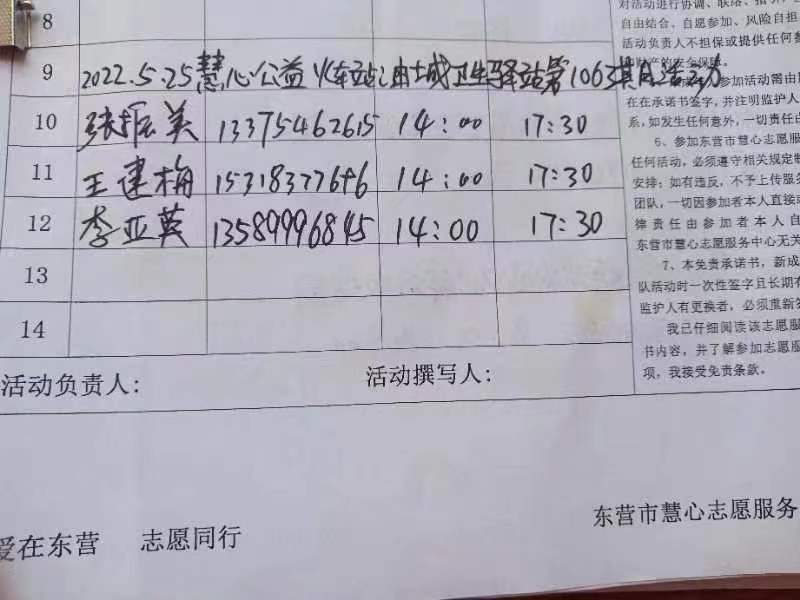 8
9 2022.5.25慧心公益火车站油城卫生驿站第106期活动
10 张振美 13375462615 14:00 17:30
11 王建梅 15318377646 14:00 17:30
12 李亚英 13589996845 14:00 17:30
13
14
活动负责人: 活动撰写人:
对活动进行协调、联络、指
自由结合、自愿参加、风险自担
活动负责人不担保或提供任何参
参加活动需由
在在承诺书签字,并注明监护人
系,如发生任何意外,一切责任由
6、参加东营市慧心志愿服
任何活动,必须遵守相关规定制
安排;如有违反,不予上传服务
团队,一切因参加者本人直接或
律责任由参加者本人自
东营市慧心志愿服务中心无关
7、本免责承诺书,新成
队活动时一次性签字且长期有
监护人有更换者,必须重新签
我已仔细阅读该志愿服
书内容,并了解参加志愿服
项,我接受免责条款。
爱在东营 志愿同行
东营市慧心志愿服务